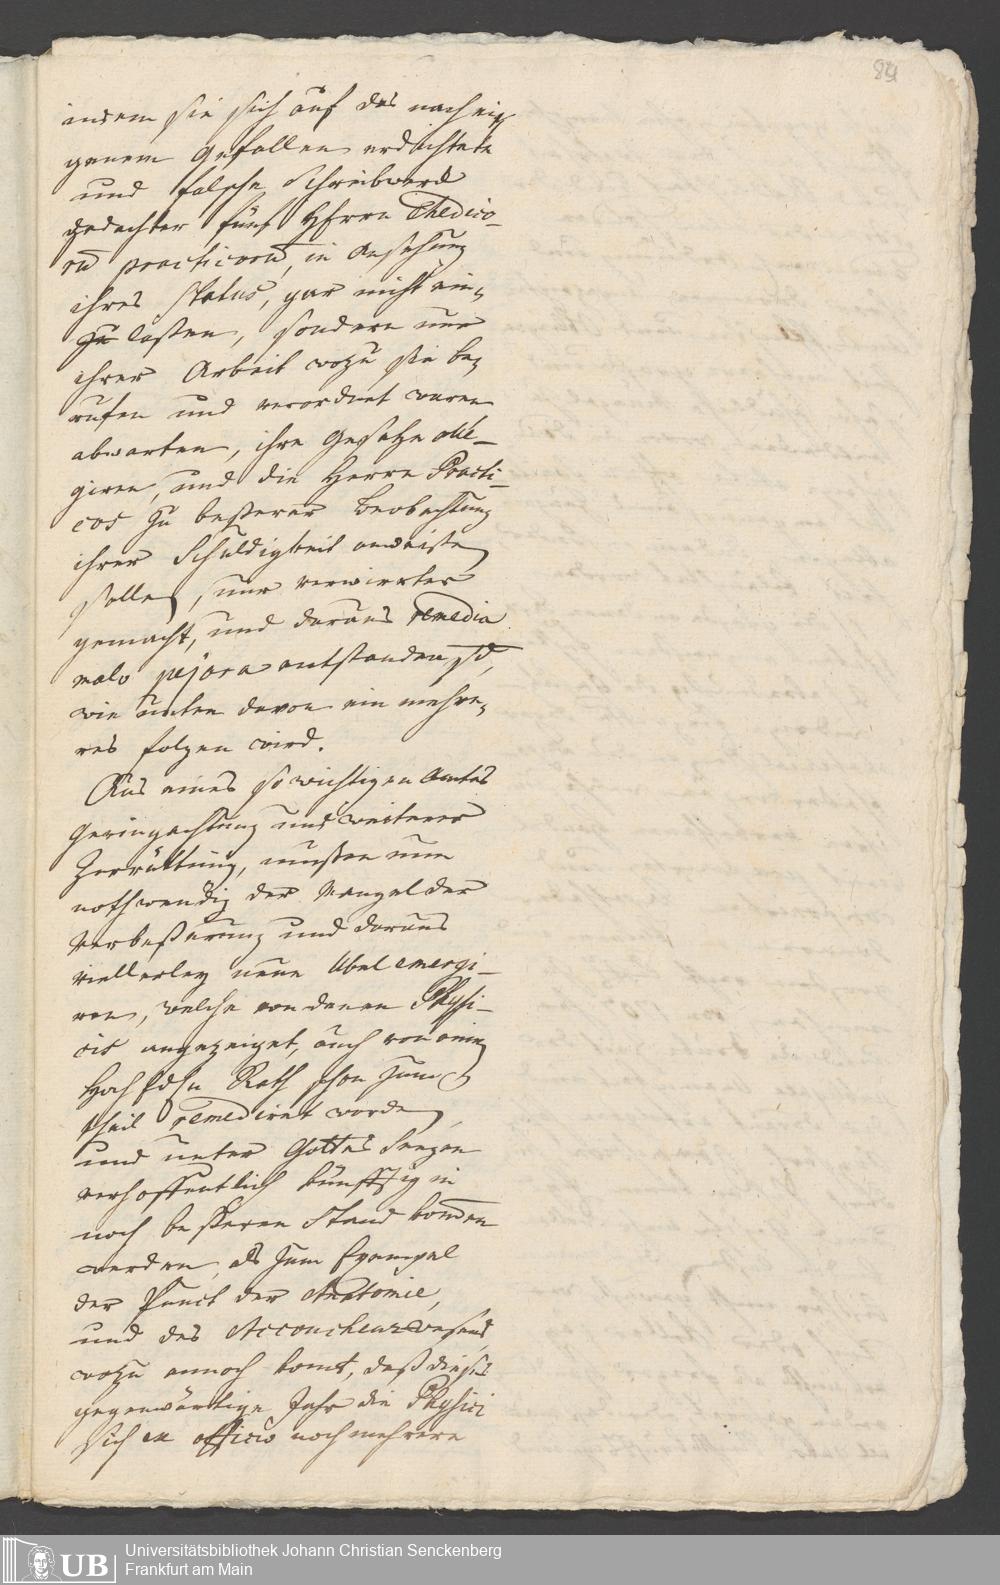 84
indem sie sich auf das nach ei-
genem Gefallen erdichtete
und falsche Schreibwerk
gedachter fünf Herrn Medico-
rũ practicorũ, in Ansehung
ihres Status, gar nicht ein-
zu laßen, sondern nur
ihrer Arbeit wozu sie be-
rufen und verordnet waren
abwarten, ihre Gesetze alle-
giren, und die Herrn Practi-
cos zu beßerer Beobachtung
ihrer Schuldigkeit anweisen
sollen, nur verwirrter
gemacht, und daraus remedia
malo pejora entstanden sd,
wie unten davon ein mehre-
res folgen wird.
Aus eines so wichtigen Amtes
Geringachtung und weiterer
Zerrüttung, mußten nun
nothwendig der Mangel der
Verbeßerung und daraus
vielerley neue Übel emergi-
ren, welche von denen Physi-
cis angezeiget, auch von einem
Hoch Edln Rath schon zum
theil remediret worden,
und unter Gottes Seegen
verhoffentlich künfftig in
noch beßeren Stand kom̅en
werden, als zum Exempel
der Punct der Anatomie,
und des Accoucheurwesens,
wozu annoch komt, daß dieses
gegenwärtige Jahr die Physici
sich ex officio noch mehrere
UB
Universitätsbibliothek Johann Christian Senckenberg
Frankfurt am Main